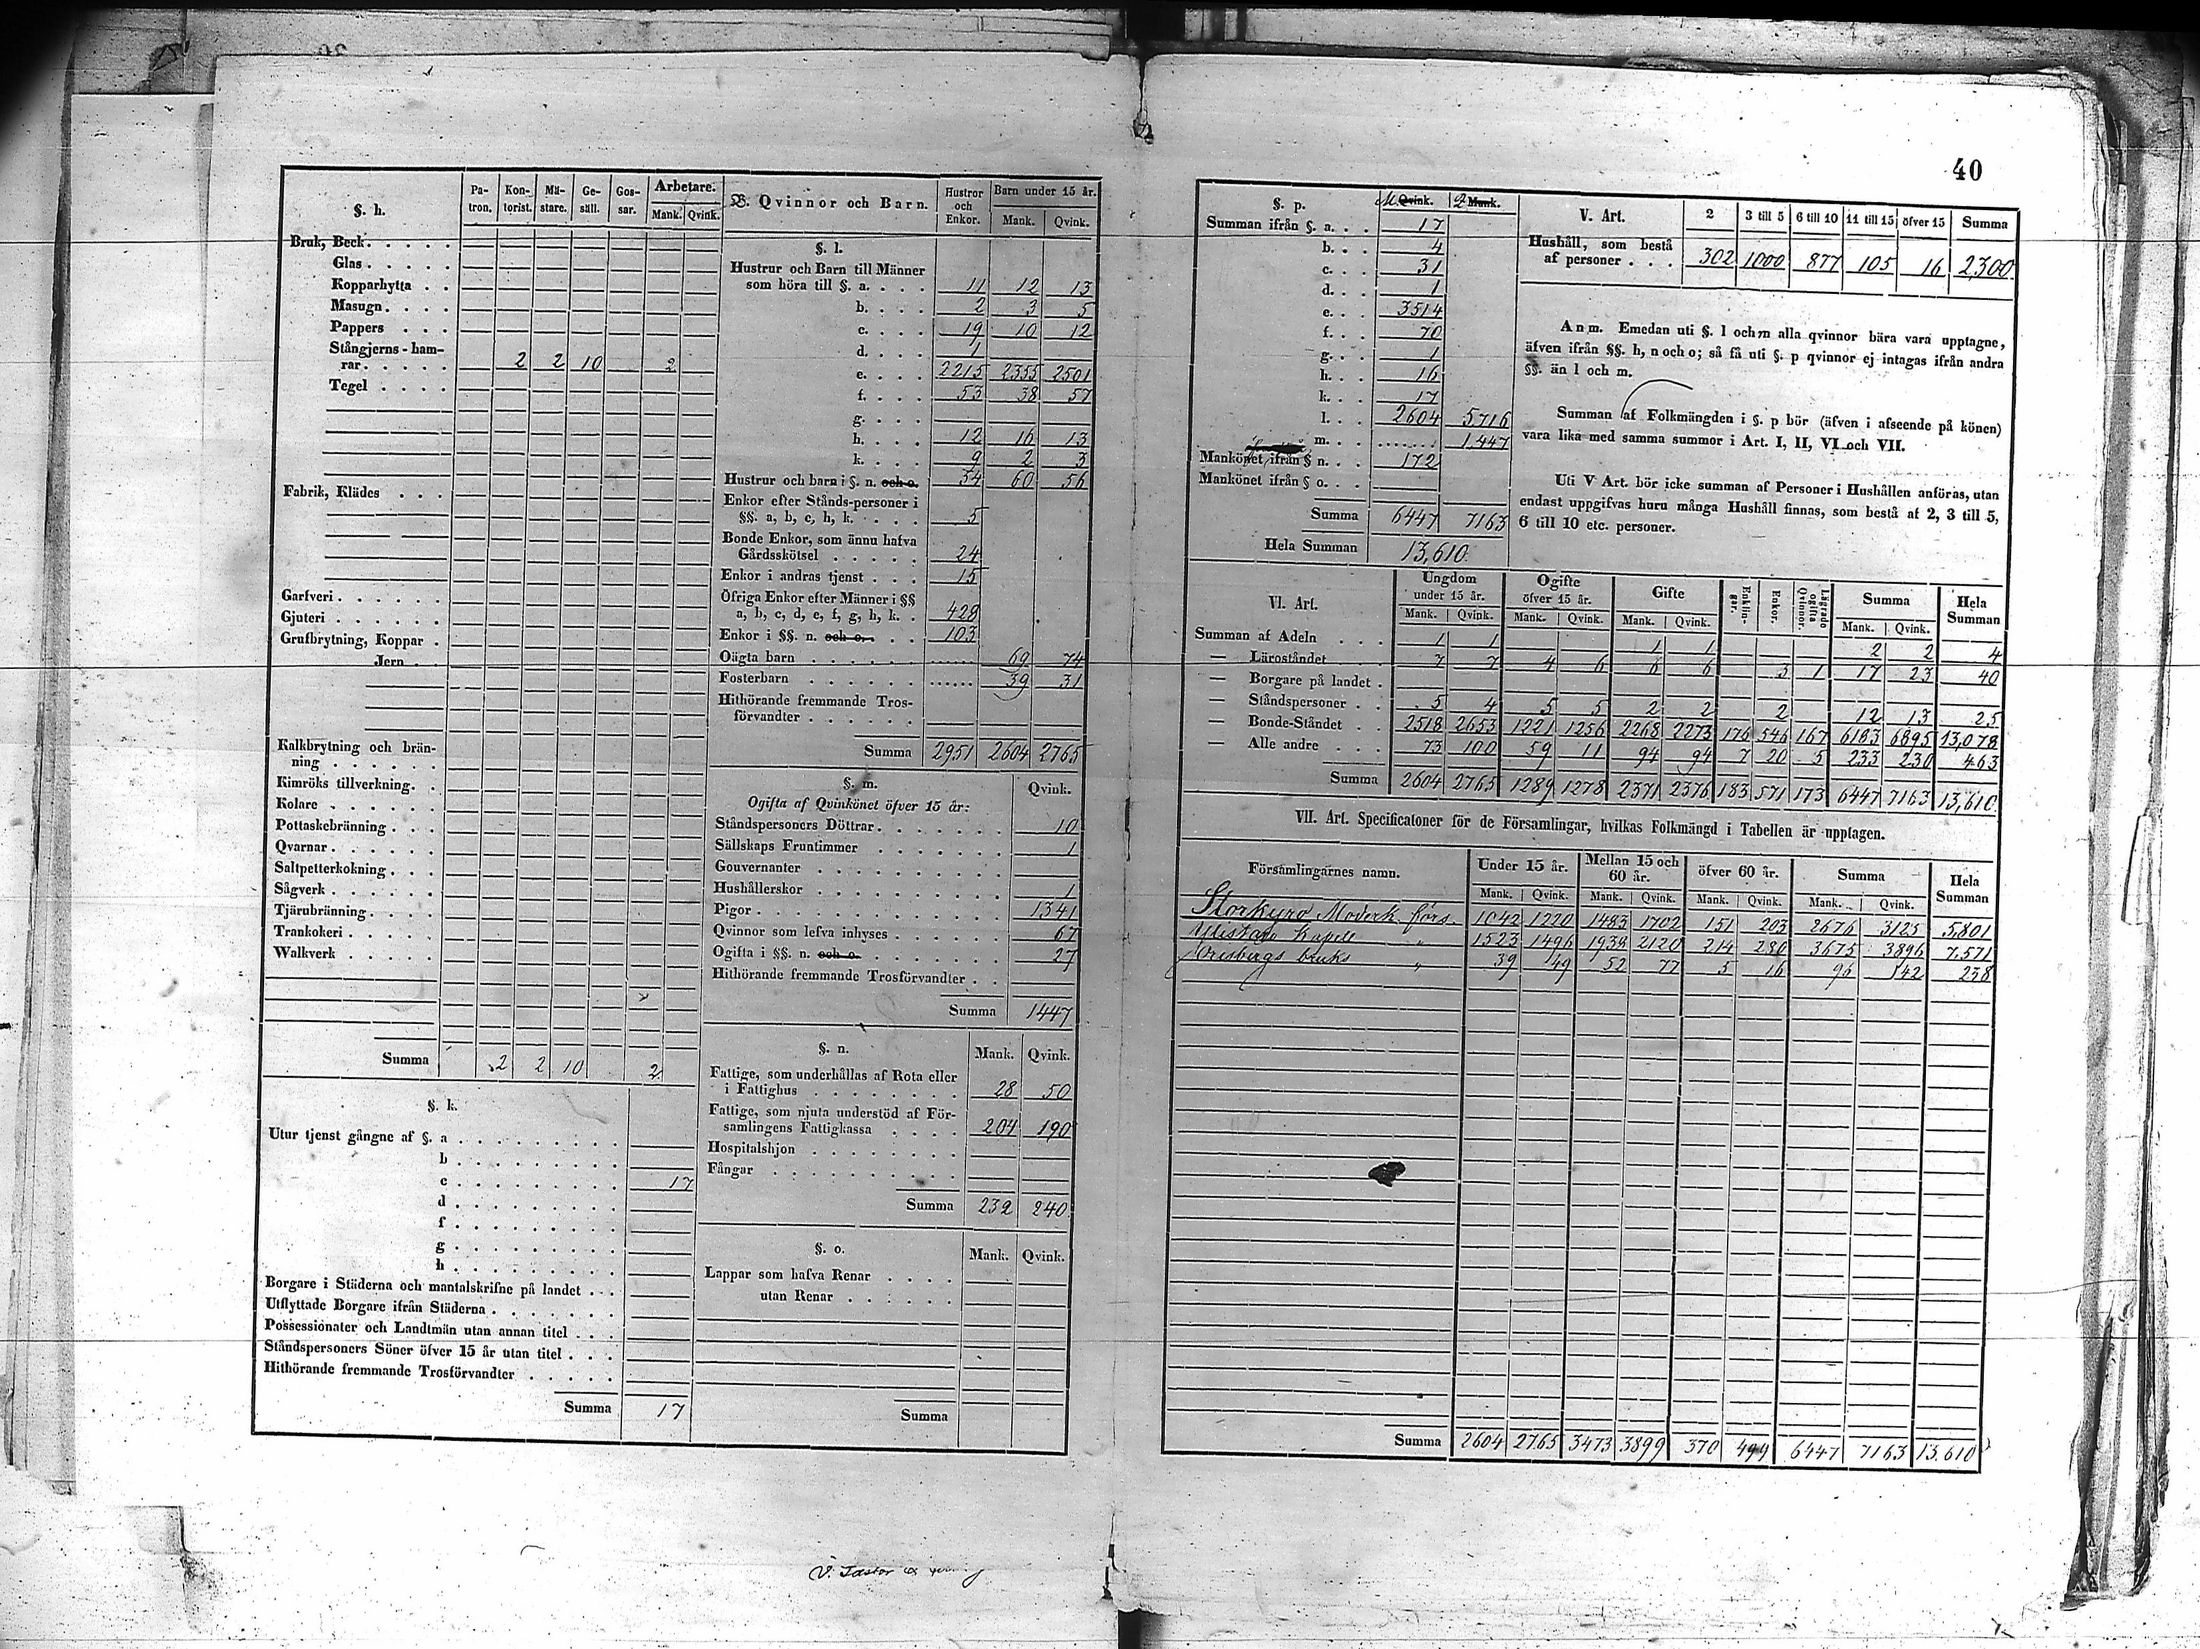 40
§. h. Pa-tron. Kon-torist. Mä-stare. Ge-säll. Gos-sar. Arbetare. Mank. Qvink.
Bruk, Beck
Glas
Kopparhytta
Masugn
Pappers
Stångjerns-ham-
rar 2 2 10 2
Tegel
Fabrik, Klädes
Garfveri
Gjuteri
Grufbrytning, Koppar
Jern
Kalkbrytning och brän-
ning
Kimröks tillverkning
Kolare
Pottaskebränning
Qvarnar
Saltpetterkokning
Sågverk
Tjärubränning
Trankokeri
Walkverk
Summa 2 2 10 2
§. k.
Utur tjenst gångne af §. a
b
c 17
d
f
g
h
Borgare i Städerna och mantalskrifne på landet
Utflyttade Borgare ifrån Städerna
Possessionater och Landtmän utan annan titel
Ståndspersoners Söner öfver 15 år utan titel
Hithörande fremmande Trosförvandter
Summa 17
B. Qvinnor och Barn. Hustror och Enkor. Barn under 15 år. Mank. Qvink.
§. l.
Hustrur och Barn till Männer
som höra till §. a. 11 12 13
b. 2 3 5
c. 19 10 12
d. 1
e. 2215 2355 2501
f. 53 38 57
g.
h. 12 16 13
k. 9 2 3
Hustrur och barn i §. n. och o. 54 60 56
Enkor efter Stånds-personer i
§§. a, b, c, h, k. 5
Bonde Enkor, som ännu hafva
Gårdsskötsel 24
Enkor i andras tjenst 15
Öfriga Enkor efter Männer i §§
a, b, c, d, e, f, g, h, k. 428
Enkor i §§. n. och o. 103
Oägta barn 69 74
Fosterbarn 39 31
Hithörande fremmande Tros-
förvandter
Summa 2951 2604 2765
§. m.
Ogifta af Qvinkönet öfver 15 år: Qvink.
Ståndspersoners Döttrar 10
Sällskaps Fruntimmer 1
Gouvernanter
Hushållerskor 1
Pigor 1341
Qvinnor som lefva inhyses 67
Ogifta i §§. n. och o. 27
Hithörande fremmande Trosförvandter
Summa 1447
§. n. Mank. Qvink.
Fattige, som underhållas af Rota eller
i Fattighus 28 50
Fattige, som njuta understöd af För-
samlingens Fattigkassa 204 190
Hospitalshjon
Fångar
Summa 232 240
§. o. Mank. Qvink.
Lappar som hafva Renar
utan Renar
Summa
§. p. M Qvink. Q Mank.
Summan ifrån §. a. 17
b. 4
c. 31
d. 1
e. 3514
f. 70
g. 1
h. 16
k. 17
l. 2604 5716
m. 1447
Mankönet ifrån § n. 172
Mankönet ifrån § o.
Summa 6447 7163
Hela Summan 13,610.
V. Art. 2 3 till 5 6 till 10 11 till 15 öfver 15 Summa
Hushåll, som bestå
af personer 302 1000 877 105 16 2,300
Anm. Emedan uti §. l och m alla qvinnor bära vara upptagne,
äfven ifrån §§. h, n och o; så få uti §. p qvinnor ej intagas ifrån andra
§§. än l och m.
Summan af Folkmängden i §. p bör (äfven i afseende på könen)
vara lika med samma summor i Art. I, II, VI och VII.
Uti V Art. bör icke summan af Personer i Hushållen anföras, utan
endast uppgifvas huru många Hushåll finnas, som bestå af 2, 3 till 5,
6 till 10 etc. personer.
VI. Art. Ungdom under 15 år. Ogifte öfver 15 år. Gifte Enklin-gar. Enkor. Lägrade ogifta Qvinnor. Summa Hela Summan
Mank. Qvink. Mank. Qvink. Mank. Qvink. Mank. Qvink.
Summan af Adeln 1 1 1 1 2 2 4
— Läroståndet 7 7 4 6 6 6 3 1 17 23 40
— Borgare på landet
— Ståndspersoner 5 4 5 5 2 2 2 12 13 25
— Bonde-Ståndet 2518 2653 1221 1256 2268 2273 176 546 167 6183 6895 13,078
— Alle andre 73 100 59 11 94 94 7 20 5 233 230 463
Summa 2604 2765 1289 1278 2371 2376 183 571 173 6447 7163 13,610
VII. Art. Specificatoner för de Församlingar, hvilkas Folkmängd i Tabellen är upptagen.
Församlingarnes namn. Under 15 år. Mellan 15 och 60 år. öfver 60 år. Summa Hela Summan
Mank. Qvink. Mank. Qvink. Mank. Qvink. Mank. Qvink.
Storkyro Moderk. förs. 1042 1220 1483 1702 151 203 2676 3125 5,801
Ylistaro Kapell " 1523 1496 1938 2120 214 280 3675 3896 7,571
Orisbergs bruks " 39 49 52 77 5 16 96 142 238
Summa 2604 2765 3473 3899 370 499 6447 7163 13,610